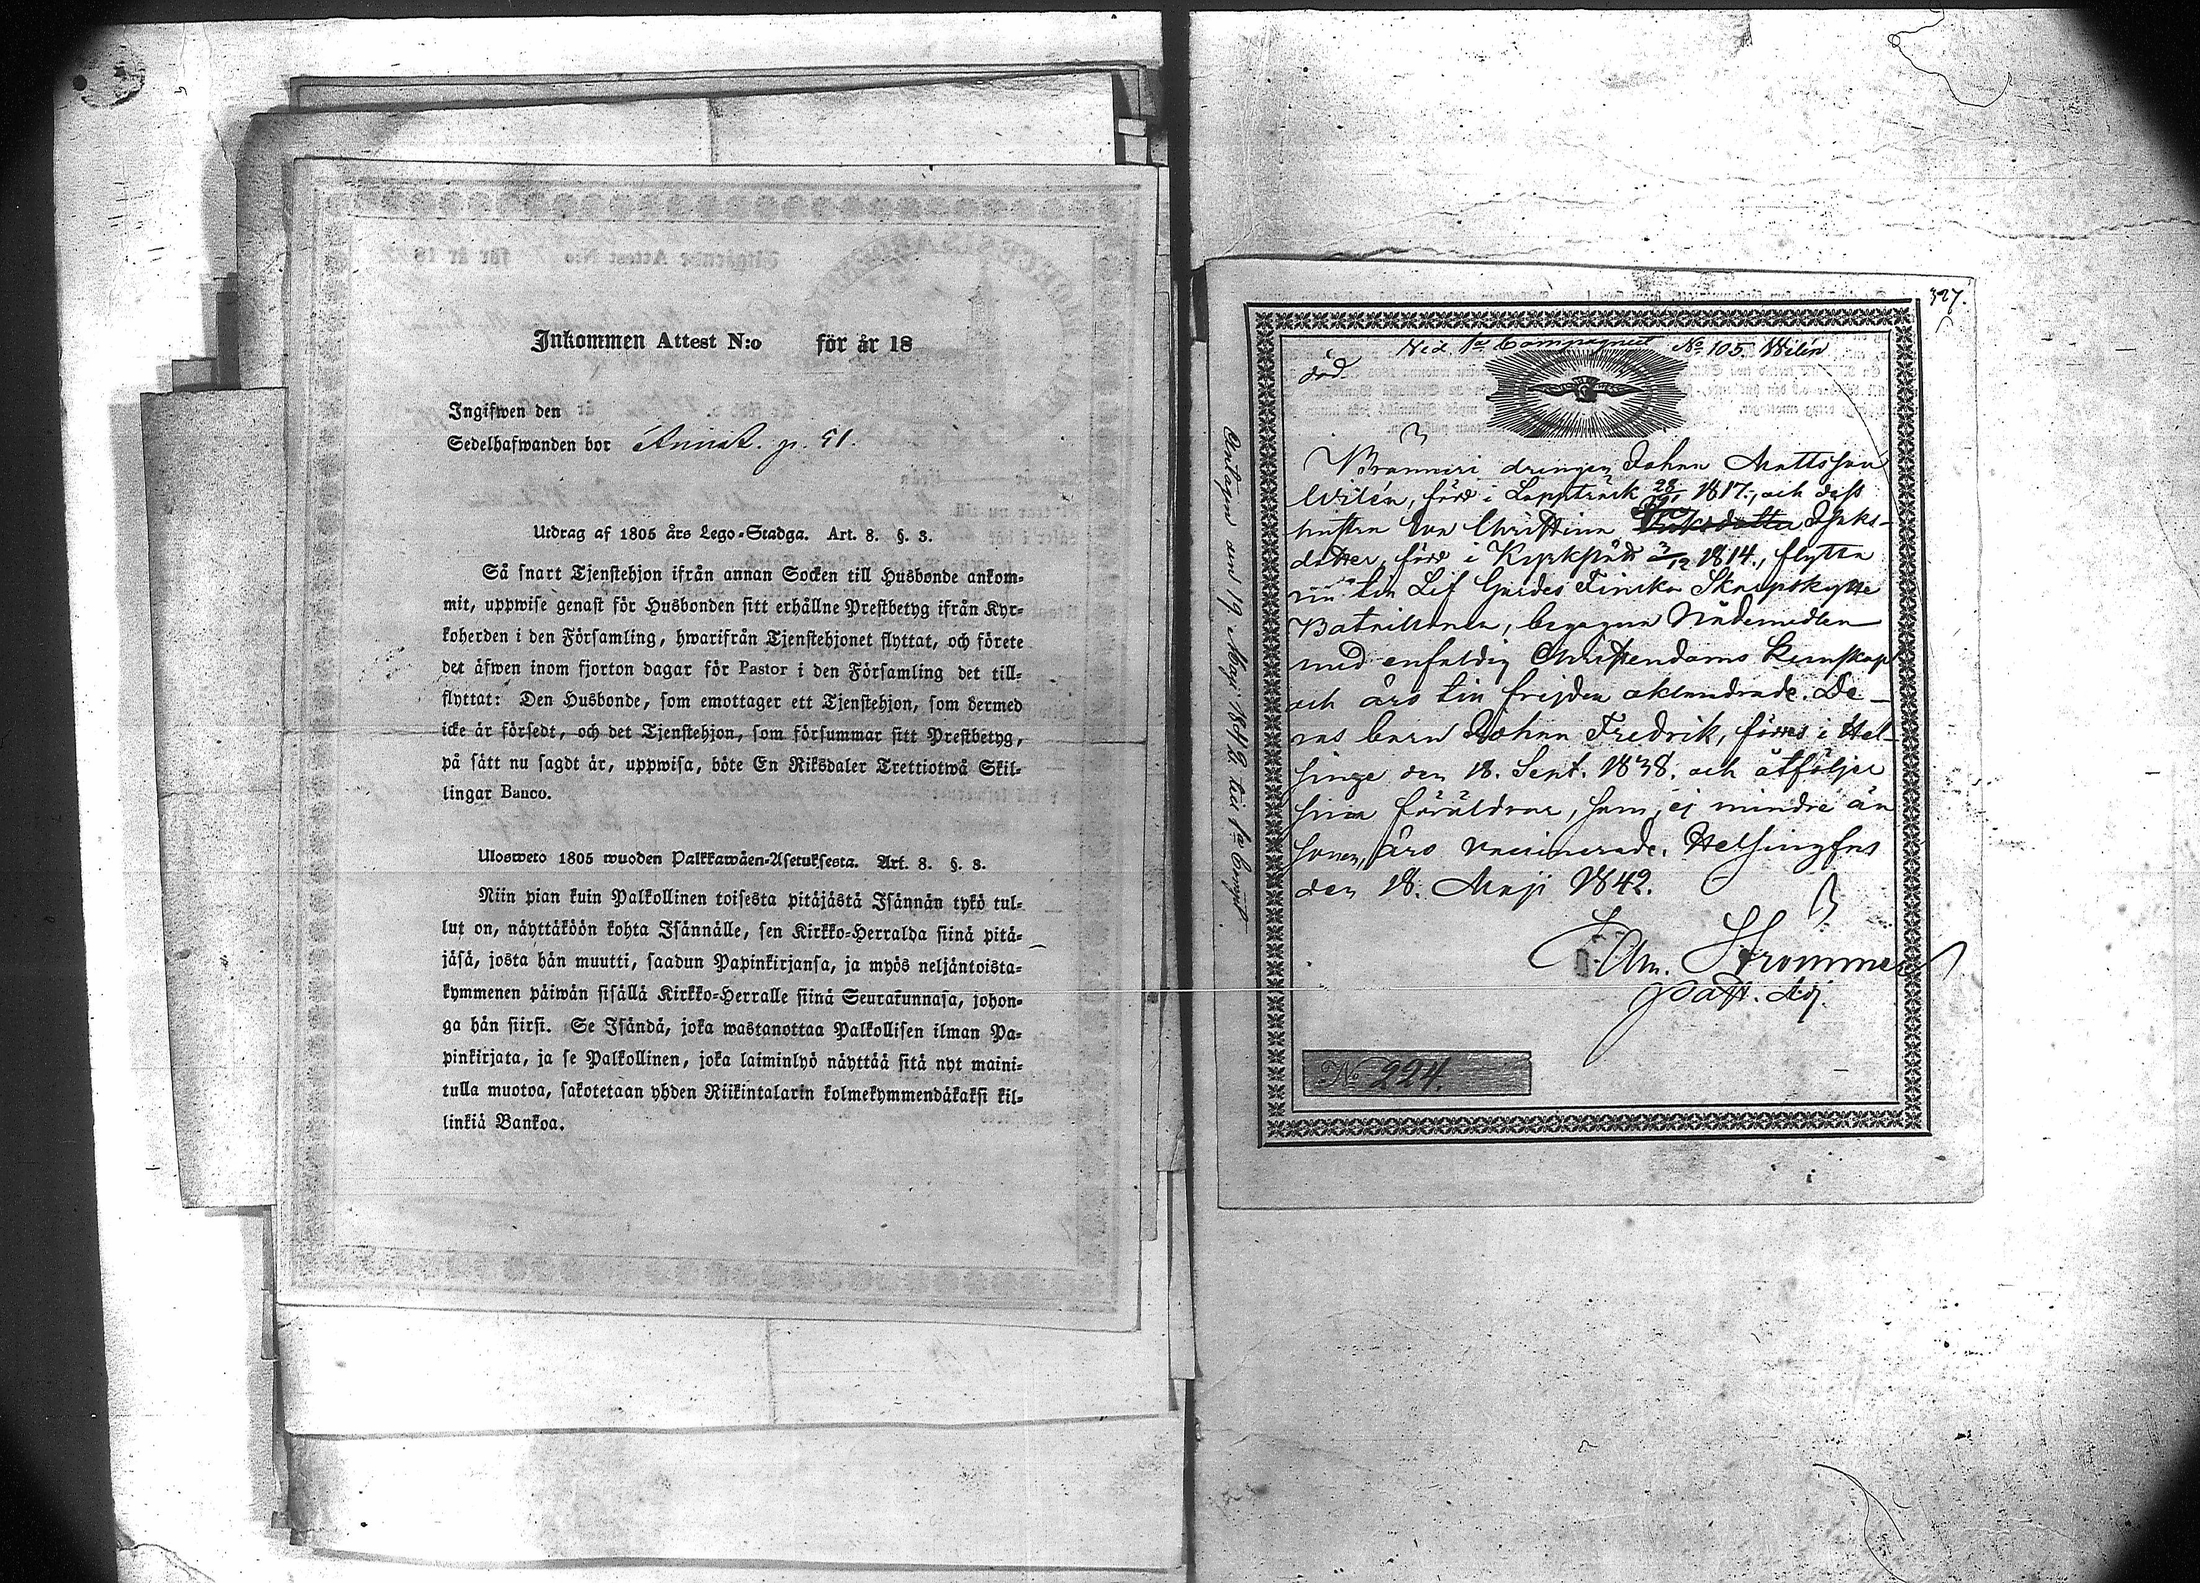 Inkommen Attest N:o för år 18
Ingifwen den
Sedelhafwanden bor Annat. p. 51.
Utdrag af 1805 års Lego-Stadga. Art. 8. §. 3.
Så snart Tjenstehjon ifrån annan Socken till Husbonde ankom-
mit, uppwise genast för Husbonden sitt erhållne Prestbetyg ifrån Kyr-
koherden i den Församling, hwarifrån Tjenstehjonet flyttat, och förete
det äfwen inom fjorton dagar för Pastor i den Församling det till-
flyttat: Den Husbonde, som emottager ett Tjenstehjon, som dermed
icke är försedt, och det Tjenstehjon, som försummar sitt Prestbetyg,
på sätt nu sagdt är, uppwisa, böte En Riksdaler Trettiotwå Skil-
lingar Banco.
Ulosweto 1805 wuoden Palkkawäen-Asetuksesta. Art. 8. §. 3.
Niin pian kuin Palkollinen toisesta pitäjästä Isännän tykö tul-
lut on, näyttäköön kohta Isännälle, sen Kirkko-Herralda siinä pitä-
jäsä, josta hän muutti, saadun Papinkirjansa, ja myös neljäntoista-
kymmenen päiwän sisällä Kirkko-Herralle siinä Seurakunnasa, johon-
ga hän siirsi. Se Isändä, joka wastanottaa Palkollisen ilman Pa-
pinkirjata, ja se Palkollinen, joka laiminlyö näyttää sitä nyt maini-
tulla muotoa, sakotetaan yhden Riikintalarin kolmekymmendäkaksi kil-
linkiä Bankoa.
327.
Ved. 1a Compagniet No 105 Wilén
död.
Brännmeri drengen Johan Mattsson
Wilén, född i Lappträsk 28/11 1817, och dess
hustru Eva Christina Isaks-
dotter, född i Kyrkslätt 3/12 1814, flytta
nu till Lif Gardes Finska Skarpskytte
Bataillonen, begagna Nådemedlen
med enfaldig Christendoms kunskap
och äro till frejden oklandrade. De-
ras barn Johan Fredrik, föddes i Hel-
singe den 18. Sept. 1838. och åtföljer
sina föräldrar, som, ej mindre än
sonen, äro vaccinerade. Helsingfors
den 18. Maji 1842.
Strömmer
Past. Adj.
No 224.
Antagen den 19 Maji 1842 vid 1a Comp.